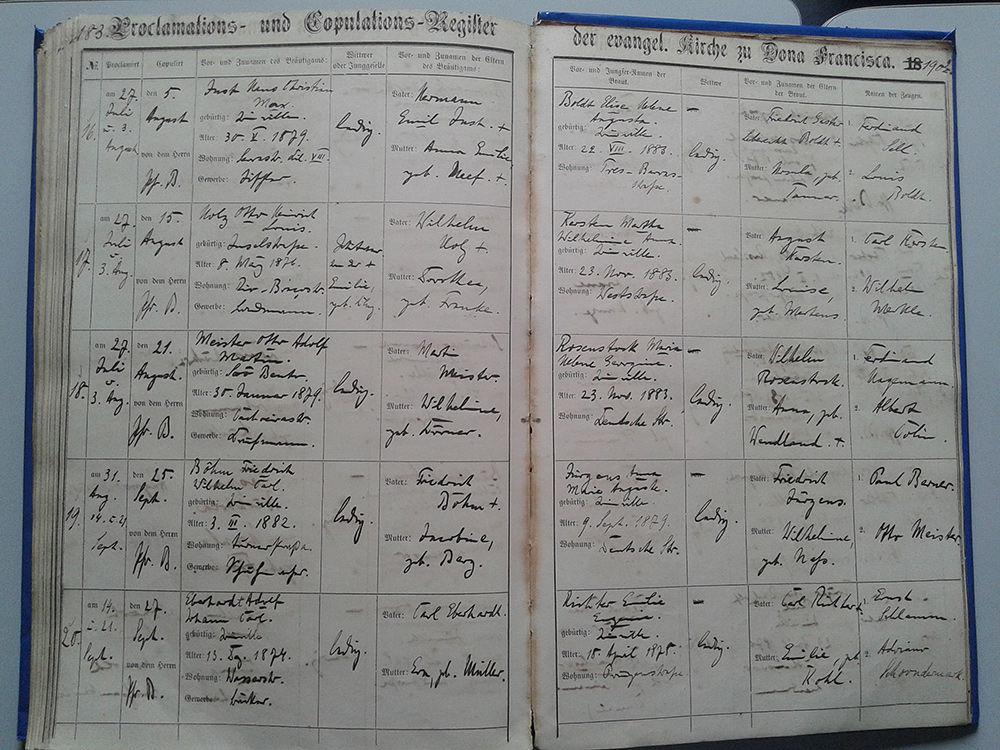 183. Proclamations- und Copulations-Register
der evangel. Kirche zu Dona Francisca. 18 1902
№ Proclamirt Copulirt Vor- und Zunamen des Bräutigams: Wittwer oder Junggeselle Vor- und Zunamen der Eltern des Bräutigams:
Vor- und Jungfer-Namen der Braut. Wittwe Vor- und Zunamen der Eltern der Braut. Namen der Zeugen.
16.
am 27. Juli u. 3. August
den 5. August
von dem Herrn Pfr. B.
Just Hans Christian
Max.
gebürtig: Joinville.
Alter: 30. X. 1879.
Wohnung:
Gewerbe:
ledig.
Vater: Hermann
Emil Just. +
Mutter: Anna Emilie
geb. +.
Boldt Elise Helene
Augusta.
gebürtig: Joinville.
Alter: 22. VIII. 1883.
Wohnung: Tres-Barras-
straße.
—
ledig.
Vater: Friedrich
Boldt +
Mutter: Rosula geb.
Tanner.
1. Ferdinand
2. Louis
Boldt.
17.
am 27. Juli u. 3. Aug.
den 15. August
von dem Herrn Pfr. B.
Holz Otto Heinrich
Louis.
gebürtig: Inselstraße.
Alter: 8. März 1876.
Wohnung:
Gewerbe: Landmann.
Emilie,
geb.
Vater: Wilhelm
Holz +
Mutter: Dorothea,
geb. Francke.
Karsten Martha
Wilhelmine Anna.
gebürtig: Joinville.
Alter: 23. Nov. 1883.
Wohnung: Weststraße.
—
ledig.
Vater: August
Karsten.
Mutter: Louise,
geb. Martens.
1. Carl Karsten
2. Wilhelm
18.
am 27. Juli u. 3. Aug.
den 21. August.
von dem Herrn Pfr. B.
Meister Otto Adolf
Martin.
gebürtig: Sao Bento.
Alter: 30. Januar 1879.
Wohnung:
Gewerbe: Kaufmann.
ledig.
Vater: Martin
Meister.
Mutter: Wilhelmine,
geb. Körner.
Rosenstock Maria
Helene Georgine.
gebürtig: Joinville.
Alter: 23. Nov. 1883.
Wohnung: Deutsche Str.
—
ledig.
Vater: Wilhelm
Rosenstock.
Mutter: Anna, geb.
Wendland. +
1. Ferdinand
Hagemann.
2. Albert
Colin.
19.
am 31. Aug. 14. u. 21. Sept.
den 25. Sept.
von dem Herrn Pfr. B.
Böhm Friedrich
Wilhelm Carl.
gebürtig: Joinville.
Alter: 3. III. 1882.
Wohnung: Turnerstraße.
Gewerbe: Schuhmacher.
ledig.
Vater: Friedrich
Böhm +
Mutter: Jacobine,
geb. Berg.
Jürgens Anna
Marie Auguste.
gebürtig: Joinville.
Alter: 9. Sept. 1879.
Wohnung: Deutsche Str.
—
ledig.
Vater: Friedrich
Jürgens.
Mutter: Wilhelmine,
geb. Nass.
1. Paul Berner.
2. Otto Meister.
20.
am 14. u. 21. Sept.
den 27. Sept.
von dem Herrn Pfr. B.
Eberhardt Adolf
Johann Carl.
gebürtig: Joinville
Alter: 13. 1874.
Wohnung: Wasserstr.
Gewerbe:
ledig.
Vater: Carl Eberhardt.
Mutter: Eva, geb. Müller.
Richter Emilie
Eugenie.
gebürtig: Joinville.
Alter: 18. April 1878.
Wohnung: Prinzenstraße
—
ledig.
Vater: Carl Richter +
Mutter: Emilie, geb.
Kohl.
1. Ernst
Schlemm.
2. Adrian
Schoondermark.